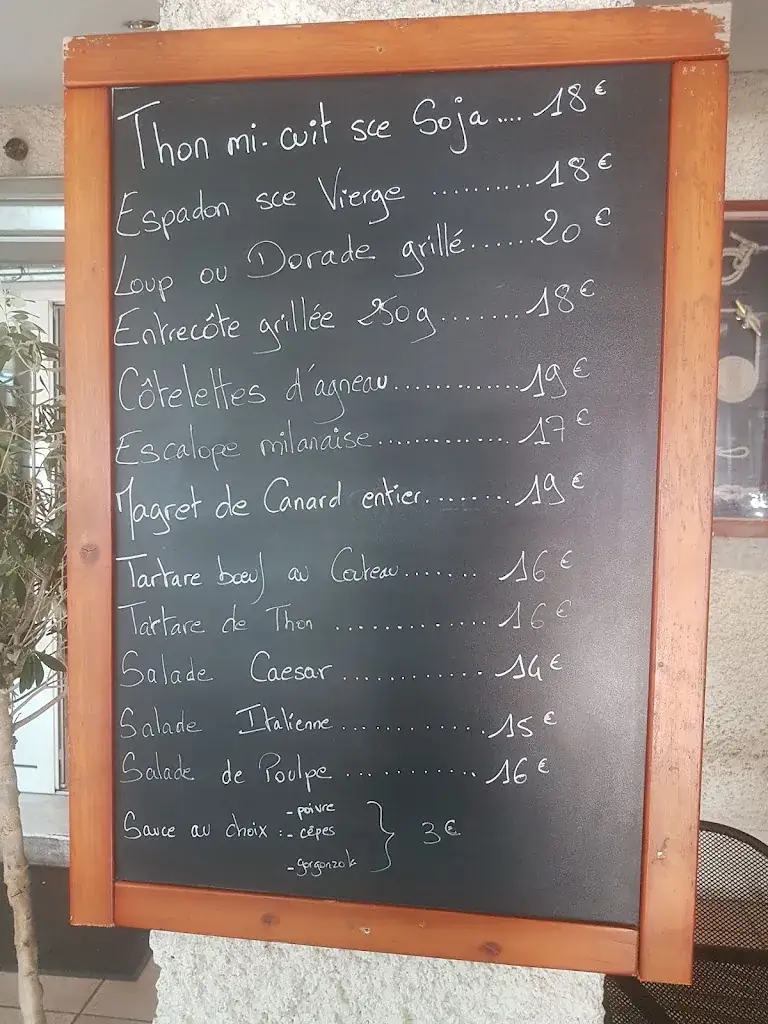 Thon mi-cuit sce Soja .... 18€
Espadon sce Vierge .......... 18€
Loup ou Dorade grillé ...... 20€
Entrecôte grillée 250g ....... 18€
Côtelettes d'agneau ............ 19€
Escalope milanaise ............. 17€
Magret de Canard entier ........ 19€
Tartare bœuf au Couteau ....... 16€
Tartare de Thon ............. 16€
Salade Caesar ............. 14€
Salade Italienne ............. 15€
Salade de Poulpe ........... 16€
Sauce au choix : - poivre
- cêpes } 3€
- gorgonzola